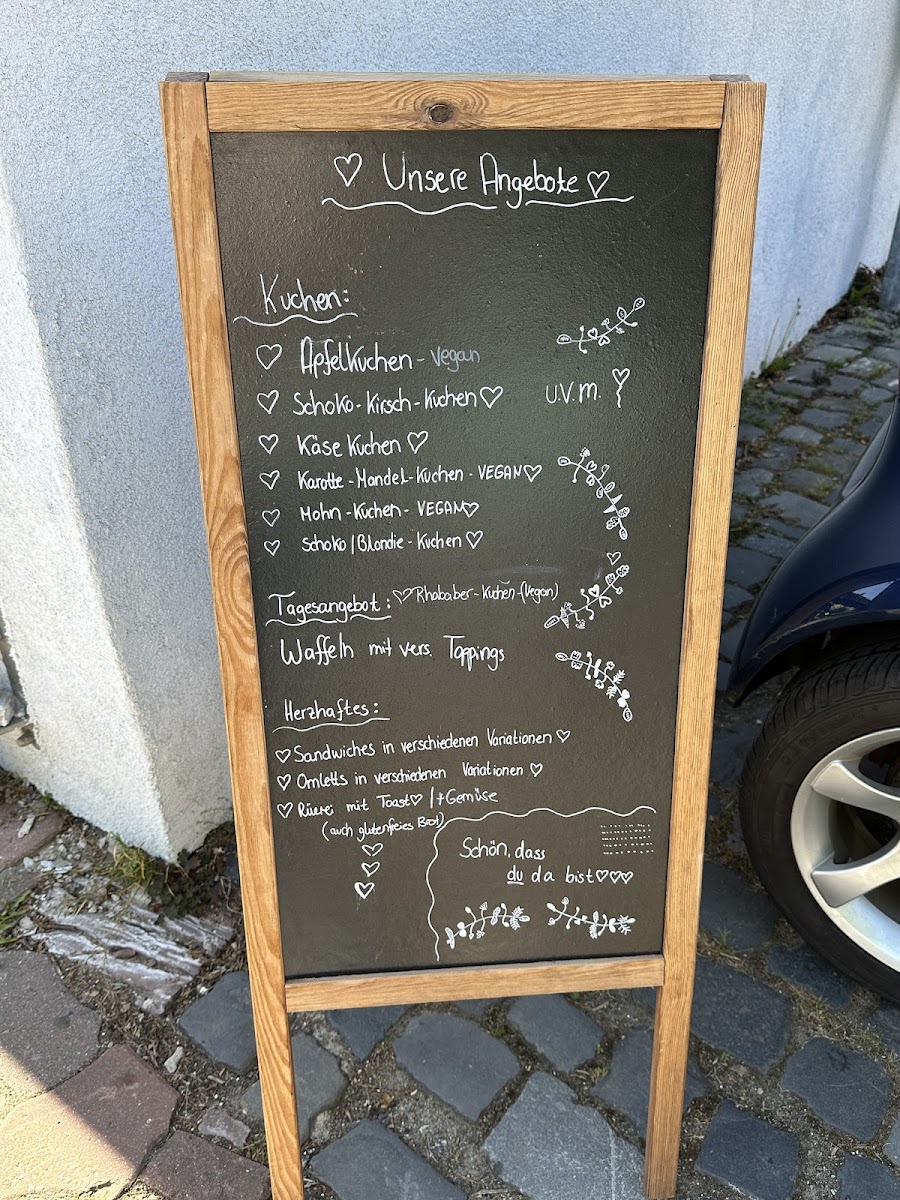 Unsere Angebote
Kuchen:
Apfelkuchen - vegan
Schoko-Kirsch-Kuchen
u.v.m.
Käse Kuchen
Karotte-Mandel-Kuchen - VEGAN
Mohn-Kuchen - VEGAN
Schoko/Blondie-Kuchen
Tagesangebot: Rhababer-Kuchen-(Vegan)
Waffeln mit vers. Toppings
Herzhaftes:
Sandwiches in verschiedenen Variationen
Omletts in verschiedenen Variationen
Rüerei mit Toast /+Gemüse
(auch glutenfeies Brot)
Schön, dass
du da bist